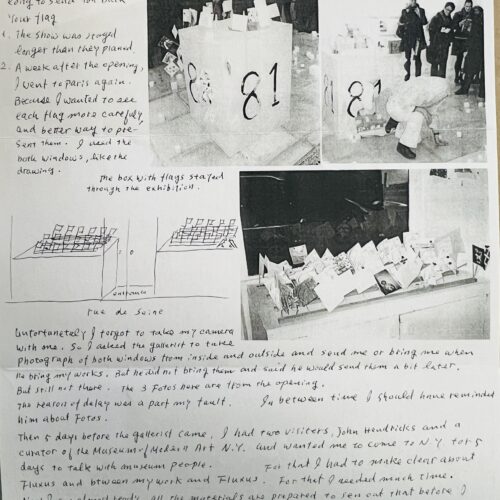 going to send you back
your flag
1. The show was staged
longer than they planned.
2. A week after the opening,
I went to Paris again.
Because I wanted to see
each flag more carefuly,
and better way to pre-
sent them. I used the
both windows, like the
drawing.
The box with flags stayed
through the exhibition.
81
81
entrance
rue de Seine
Unfortunetely I forgot to take my camera
with me. So I asked the gallerist to take
photograph of both windows from inside and outside and send me or bring me when
he bring my works. But he did not bring them and said he would send them a bit later.
But still not there. The 3 Fotos here are from the opening.
The reason of delay was a part my fault. In between time I should have reminded
him about Fotos.
Then 5 days before the gallerist came, I had two visitors, John Hendricks and a
curator of the Museum of Modern Art N.Y. and wanted me to come to N.Y for 5
days to talk with museum people. For that I had to make clear about
Fluxus and btween my work and Fluxus. For that I needed much time.
Now I am almost ready, all the materials are prepared to sen out that before I